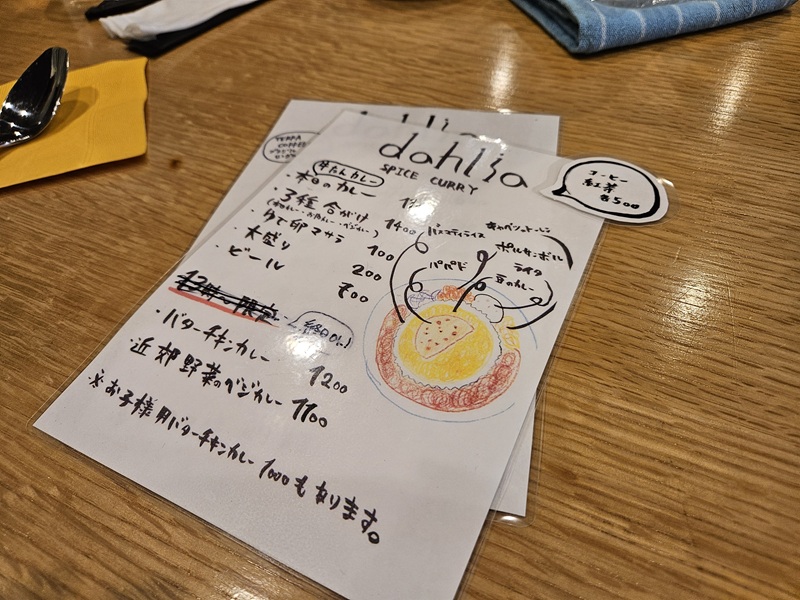 dahlia
SPICE CURRY
コーヒー
紅茶
¥500
・本日のカレー
・3種合がけ 1400
・ゆで卵マサラ 100
・大盛り 200
・ビール
終日OK!
・バターチキンカレー 1200
・近郊野菜のベジカレー 1100
※お子様用バターチキンカレー 1000もあります。
バスマティライス
キャベツトーレン
ポルサンボル
パパド
ライタ
豆のカレー